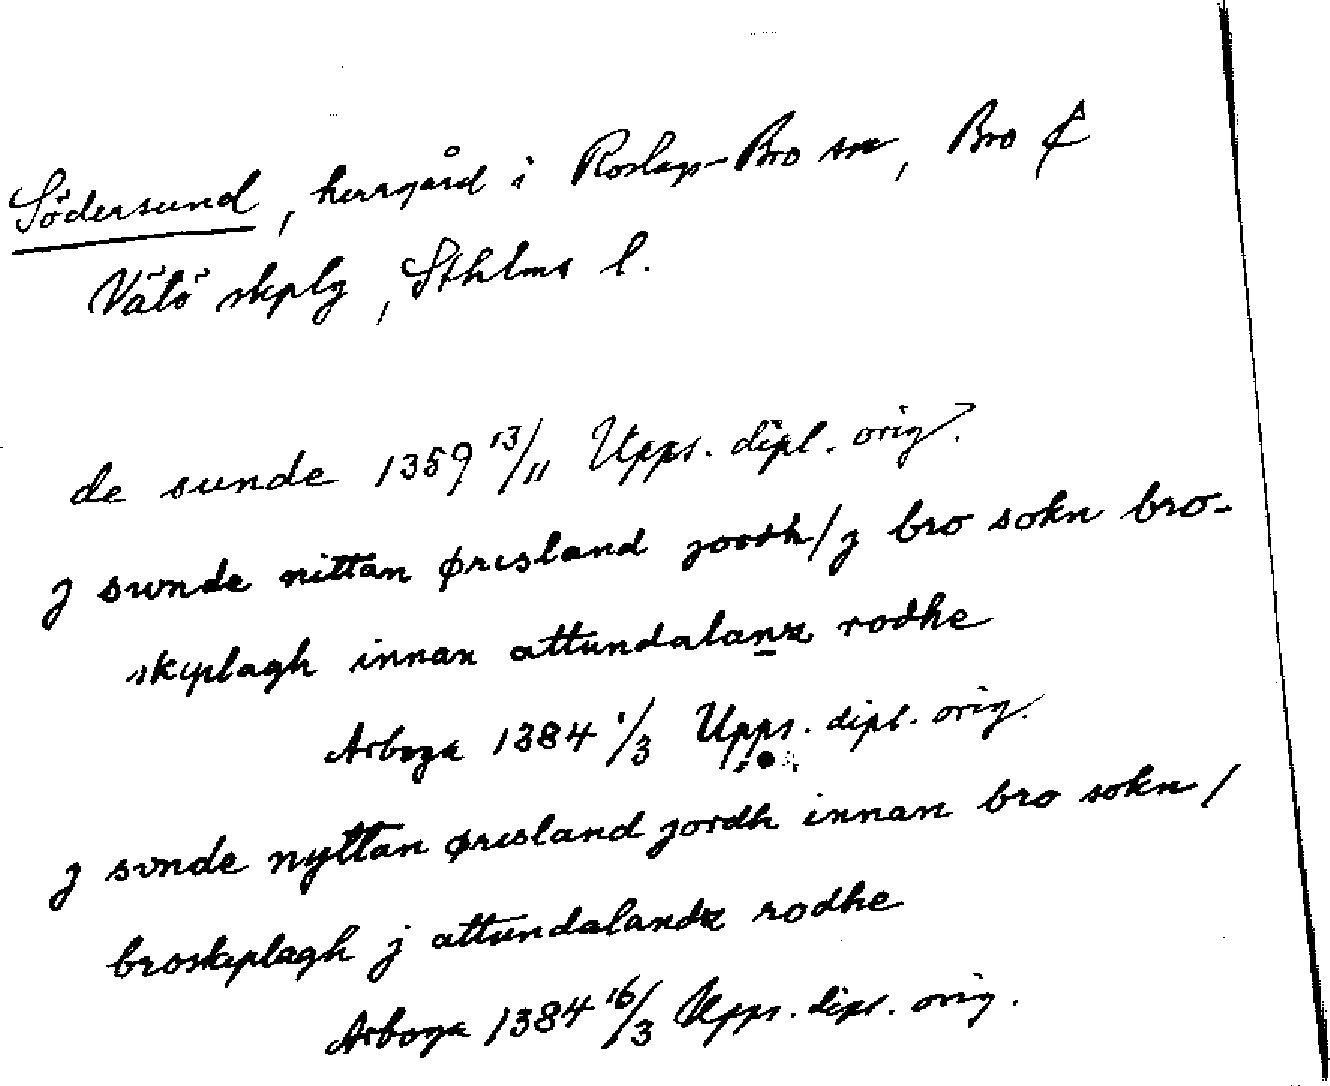 Södersund, herrgård i Roslags-Bro sn, Bro &
Vätö skplg, Sthlms l.
de sunde 1359 13/11 Upps. dipl. orig.
j svnde nittan ørisland jordh/j bro sokn bro-
skiplagh innan attundalanz rodhe
Arboga 1384 1/3 Upps. dipl. orig.
j svnde nyttan ørisland jordh innan bro sokn/
broskiplagh j attundalandz rodhe
Arboga 1384 16/3 Upps. dipl. orig.